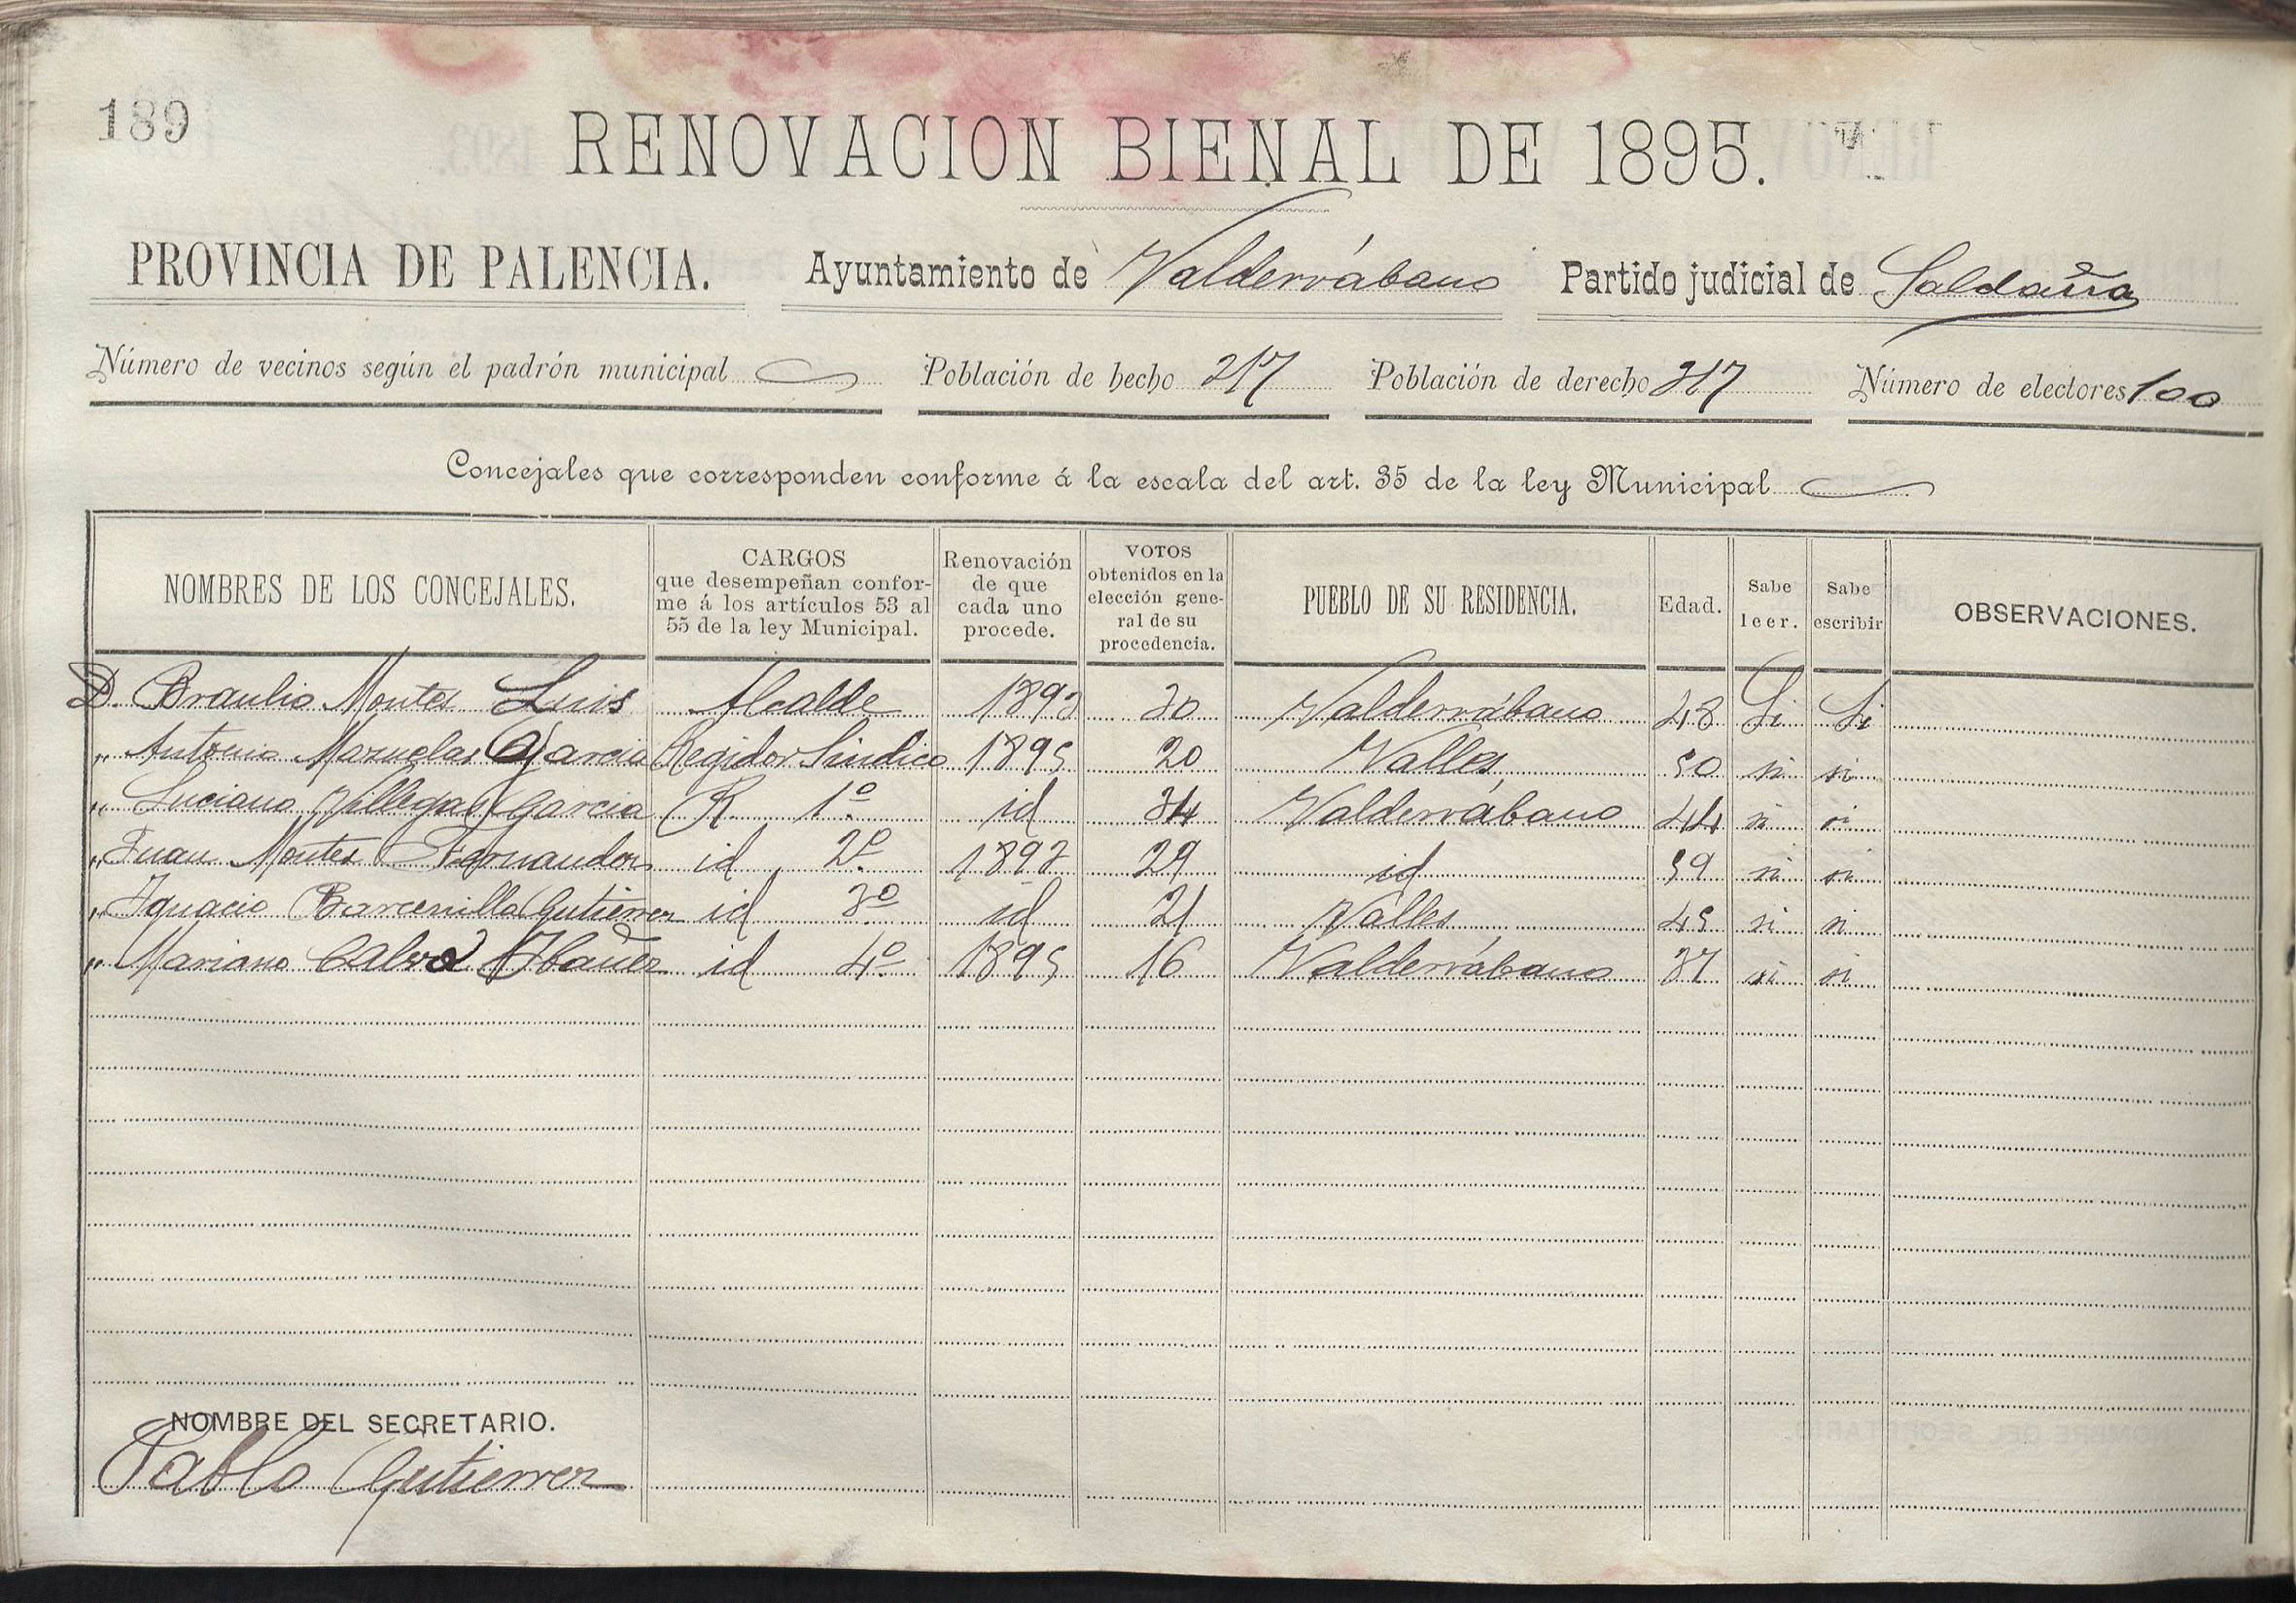 189
RENOVACION BIENAL DE 1895.
PROVINCIA DE PALENCIA. Ayuntamiento de Valderrábano Partido judicial de Saldaña
Número de vecinos según el padrón municipal Población de hecho 317 Población de derecho 317 Número de electores 100
Concejales que corresponden conforme á la escala del art. 35 de la ley Municipal
NOMBRES DE LOS CONCEJALES. CARGOS que desempeñan conforme á los artículos 53 al 55 de la ley Municipal. Renovación de que cada uno procede. VOTOS obtenidos en la elección general de su procedencia. PUEBLO DE SU RESIDENCIA. Edad. Sabe leer. Sabe escribir OBSERVACIONES.
D. Braulio Montes Luis Alcalde 1893 30 Valderrábano 48 Si Si
„ Antonio Mazuelas Garcia Regidor Sindico 1895 20 Valles 50 si si
„ Luciano Villegas Garcia R. 1º id 34 Valderrábano 44 si si
„ Juan Montes Fernandez id 2º 1893 29 id 59 si si
„ Ignacio Barcenilla Gutierrez id 3º id 21 Valles 45 si si
„ Mariano Calvo Ibañez id 4º 1895 16 Valderrábano 37 si si
NOMBRE DEL SECRETARIO.
Pablo Gutierrez